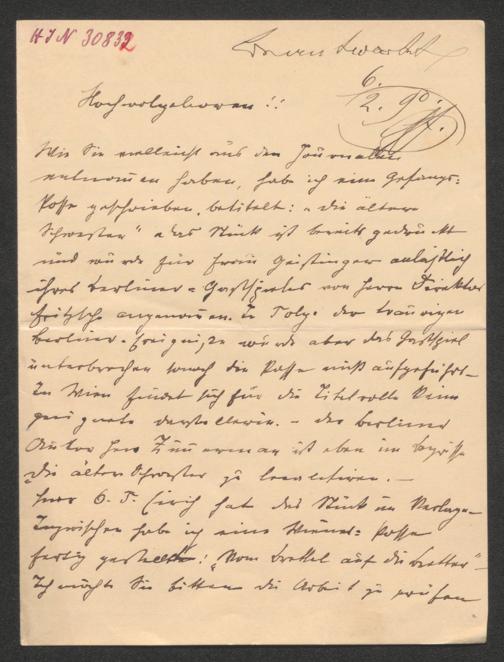 HIN 30832
Beantwortet
6.
2. 90.
Hochwolgeboren!!
Wie Sie vielleicht aus den Journalen
entnommen haben, habe ich eine Gesangs=
Posse geschrieben, betitelt: „die ältere
Schwester“ das Stück ist bereits gedruckt
und wurde für Frau Geistinger anläßlich
ihres Berliner=Gastspieles von Herrn Direktor
Fritzsche angenommen. In Folge der traurigen
Berliner=Ereignisse wurde aber das Gastspiel
unterbrochen sonach die Posse nicht aufgeführt –
In Wien findet sich für die Titelrolle keine
geeignete Darstellerin. – der Berliner
Autor Herr Zimmerman ist eben im Begriffe
„die ältere Schwester“ zu
Herr O. F. Eirich hat das Stück im Verlage –
Inzwischen habe ich eine Wiener=Posse
fertig gestellt! „Vom Brettel auf die Bretter“ –
Ich möchte Sie bitten die Arbeit zu prüfen